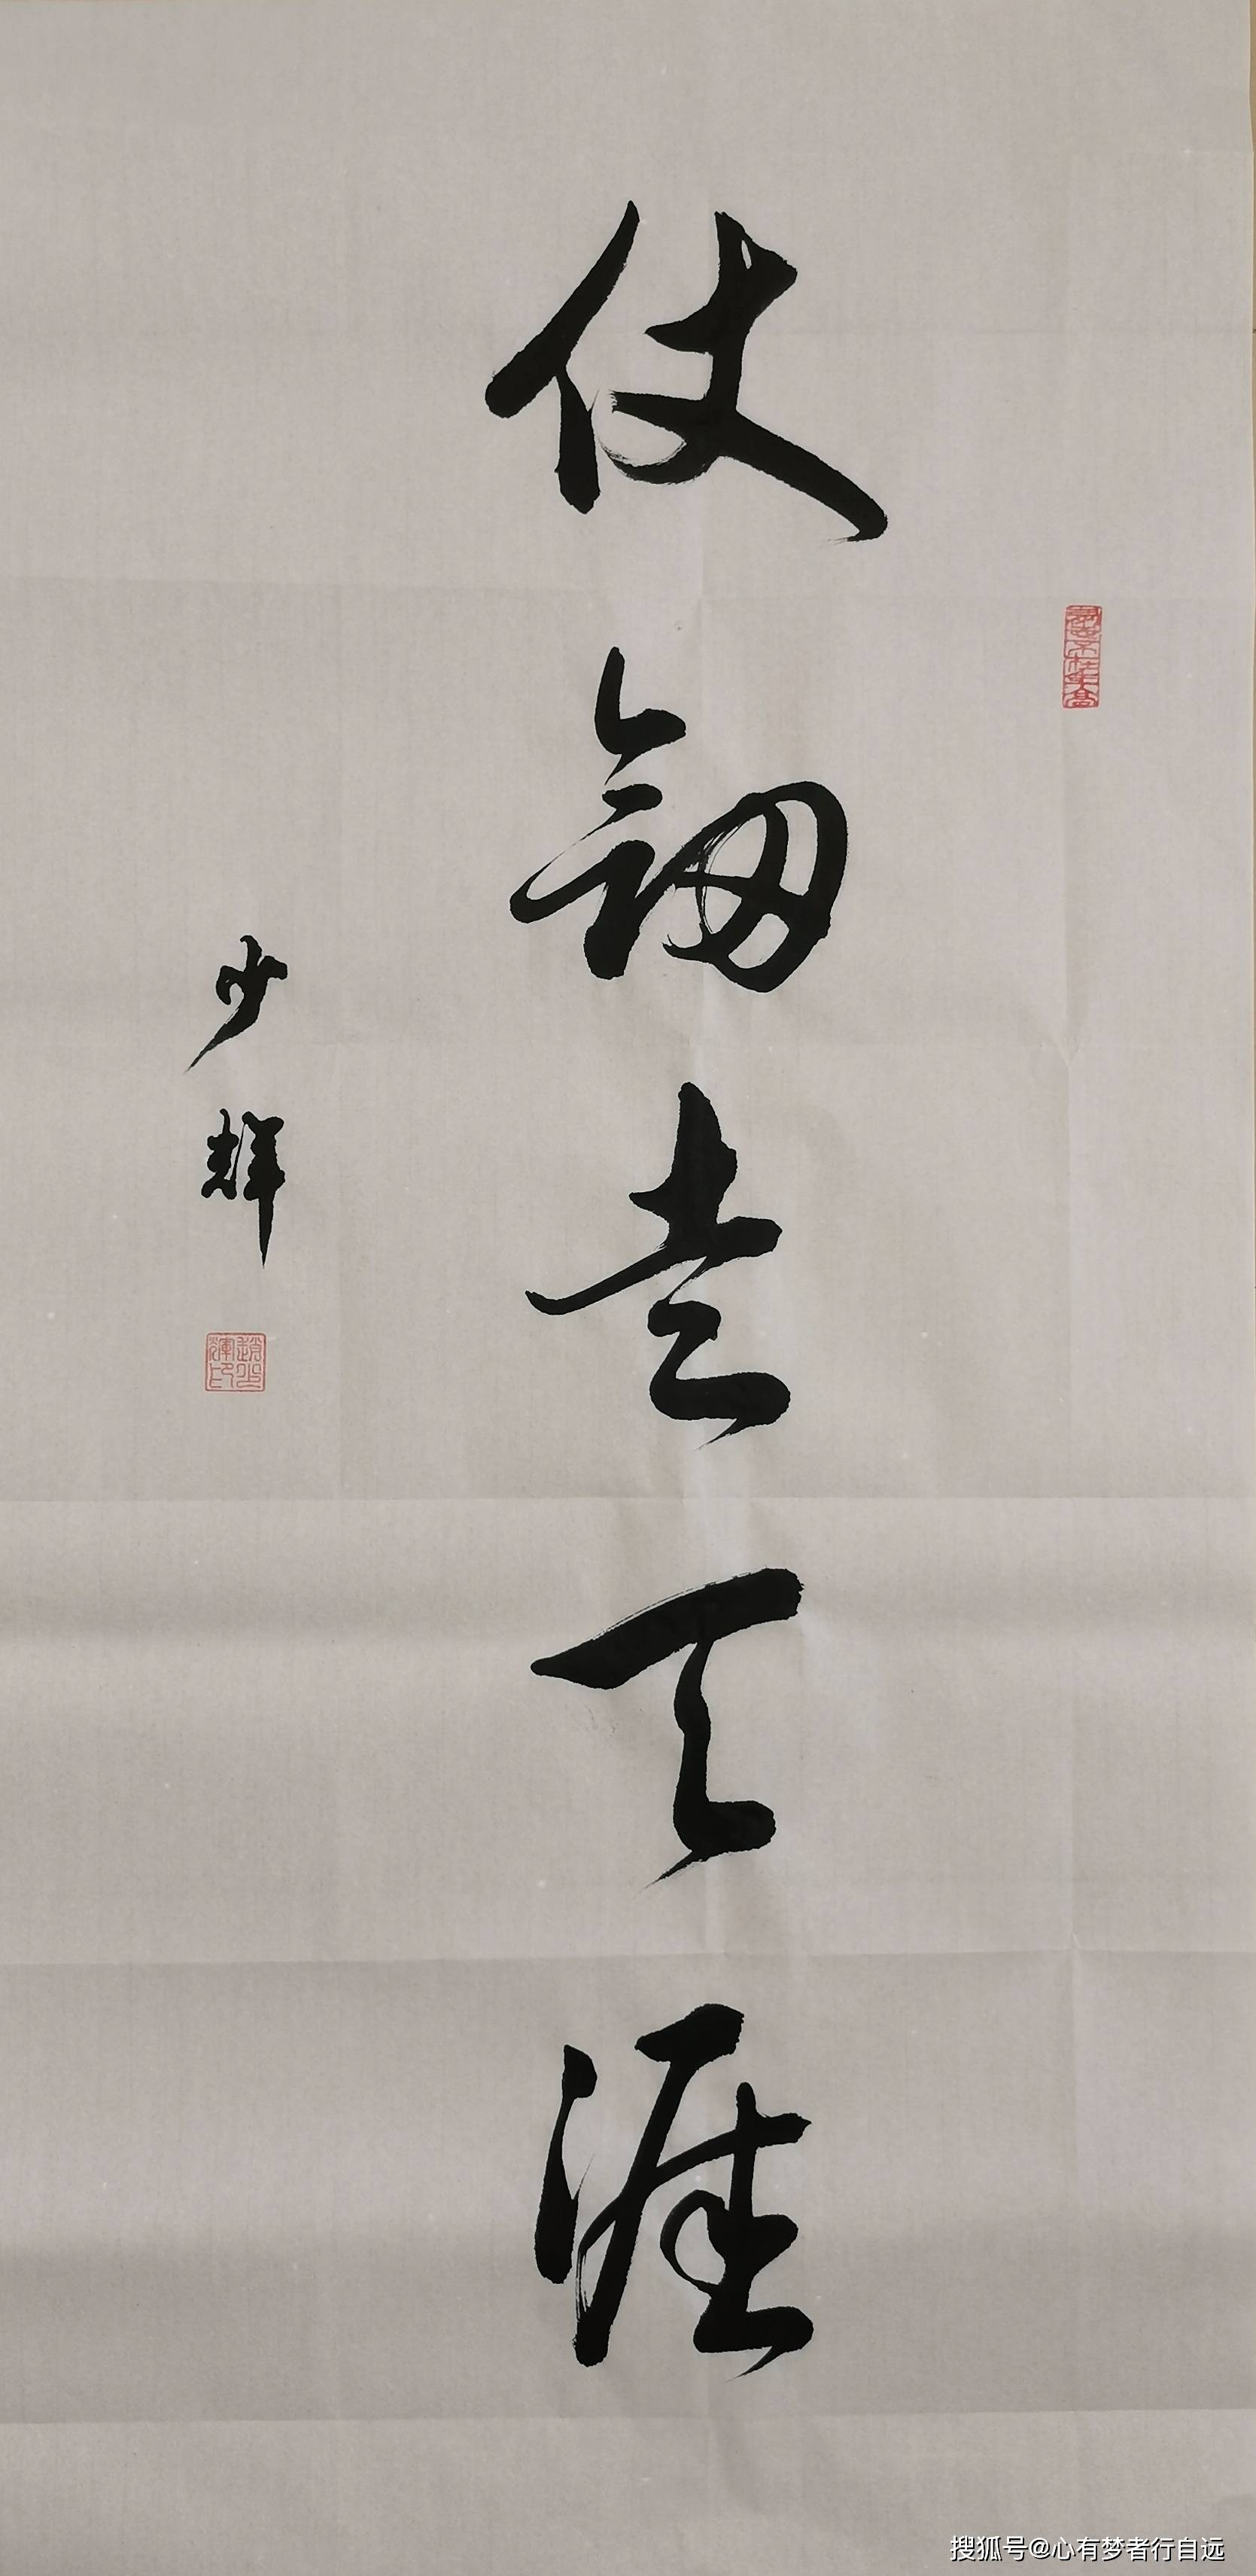 仗剑走天涯
少辉
赵少辉印
搜狐号@心有梦者行自远